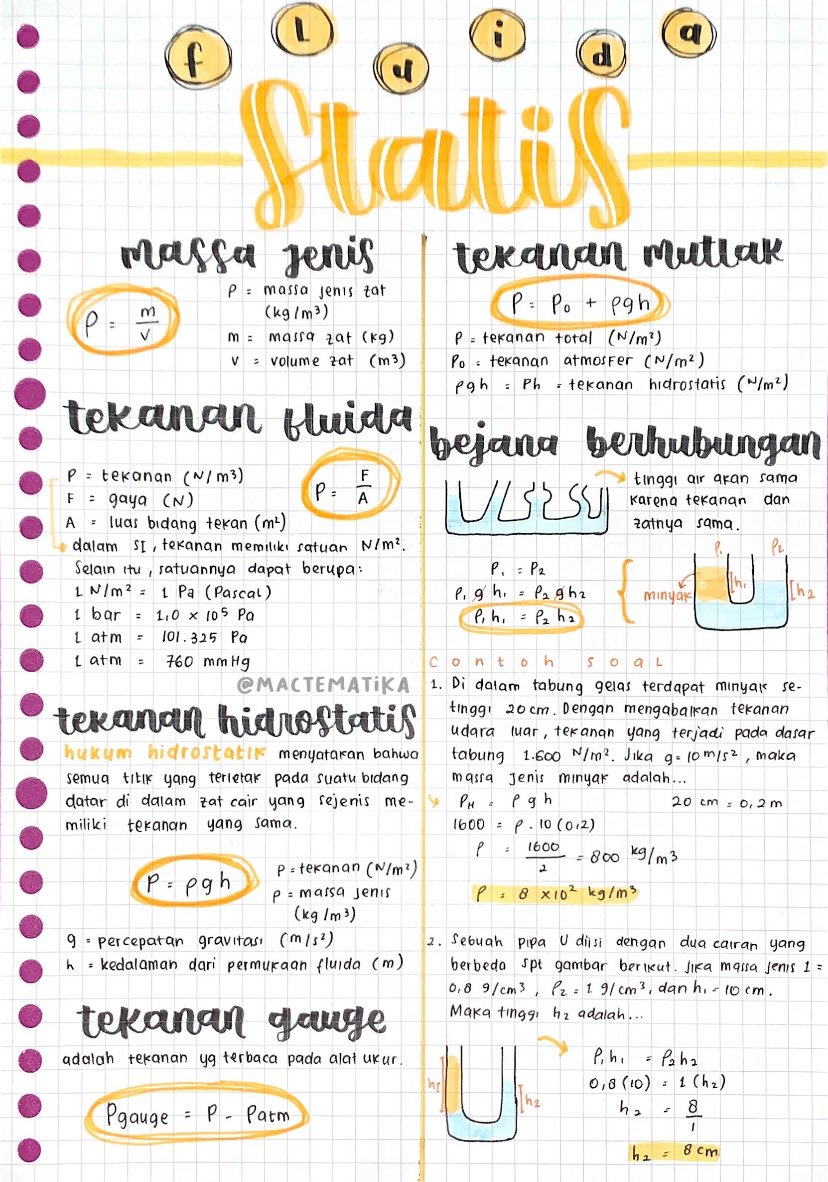 fluida
Statis
massa jenis
ρ = m/V
ρ = massa jenis zat
(kg/m³)
m = massa zat (kg)
V = volume zat (m³)
tekanan fluida
P = tekanan (N/m³)
F = gaya (N)
A = luas bidang tekan (m²)
P = F/A
dalam SI, tekanan memiliki satuan N/m².
Selain itu, satuannya dapat berupa:
1 N/m² = 1 Pa (Pascal)
1 bar = 1,0 × 10⁵ Pa
1 atm = 101.325 Pa
1 atm = 760 mmHg
@MACTEMATIKA
tekanan hidrostatis
hukum hidrostatik menyatakan bahwa
semua titik yang terletak pada suatu bidang
datar di dalam zat cair yang sejenis me-
miliki tekanan yang sama.
P = ρgh
P = tekanan (N/m²)
ρ = massa jenis
(kg/m³)
g = percepatan gravitasi (m/s²)
h = kedalaman dari permukaan fluida (m)
tekanan gauge
adalah tekanan yg terbaca pada alat ukur.
Pgauge = P - Patm
tekanan mutlak
P = P₀ + ρgh
P = tekanan total (N/m²)
P₀ = tekanan atmosfer (N/m²)
ρgh = Ph = tekanan hidrostatis (N/m²)
bejana berhubungan
tinggi air akan sama
karena tekanan dan
zatnya sama.
P₁ = P₂
ρ₁ g h₁ = ρ₂ g h₂
ρ₁ h₁ = ρ₂ h₂
P₁ P₂
minyak h₁ h₂
Contoh soal
1. Di dalam tabung gelas terdapat minyak se-
tinggi 20 cm. Dengan mengabaikan tekanan
udara luar, tekanan yang terjadi pada dasar
tabung 1.600 N/m². Jika g = 10 m/s², maka
massa jenis minyak adalah...
PH = ρ g h 20 cm = 0,2 m
1600 = ρ . 10 (0,2)
ρ = 1600/2 = 800 kg/m³
ρ = 8 × 10² kg/m³
2. Sebuah pipa U diisi dengan dua cairan yang
berbeda spt gambar berikut. Jika massa jenis 1 =
0,8 g/cm³, ρ₂ = 1 g/cm³, dan h₁ = 10 cm.
Maka tinggi h₂ adalah...
h₁ h₂
ρ₁h₁ = ρ₂h₂
0,8 (10) = 1 (h₂)
h₂ = 8/1
h₂ = 8 cm